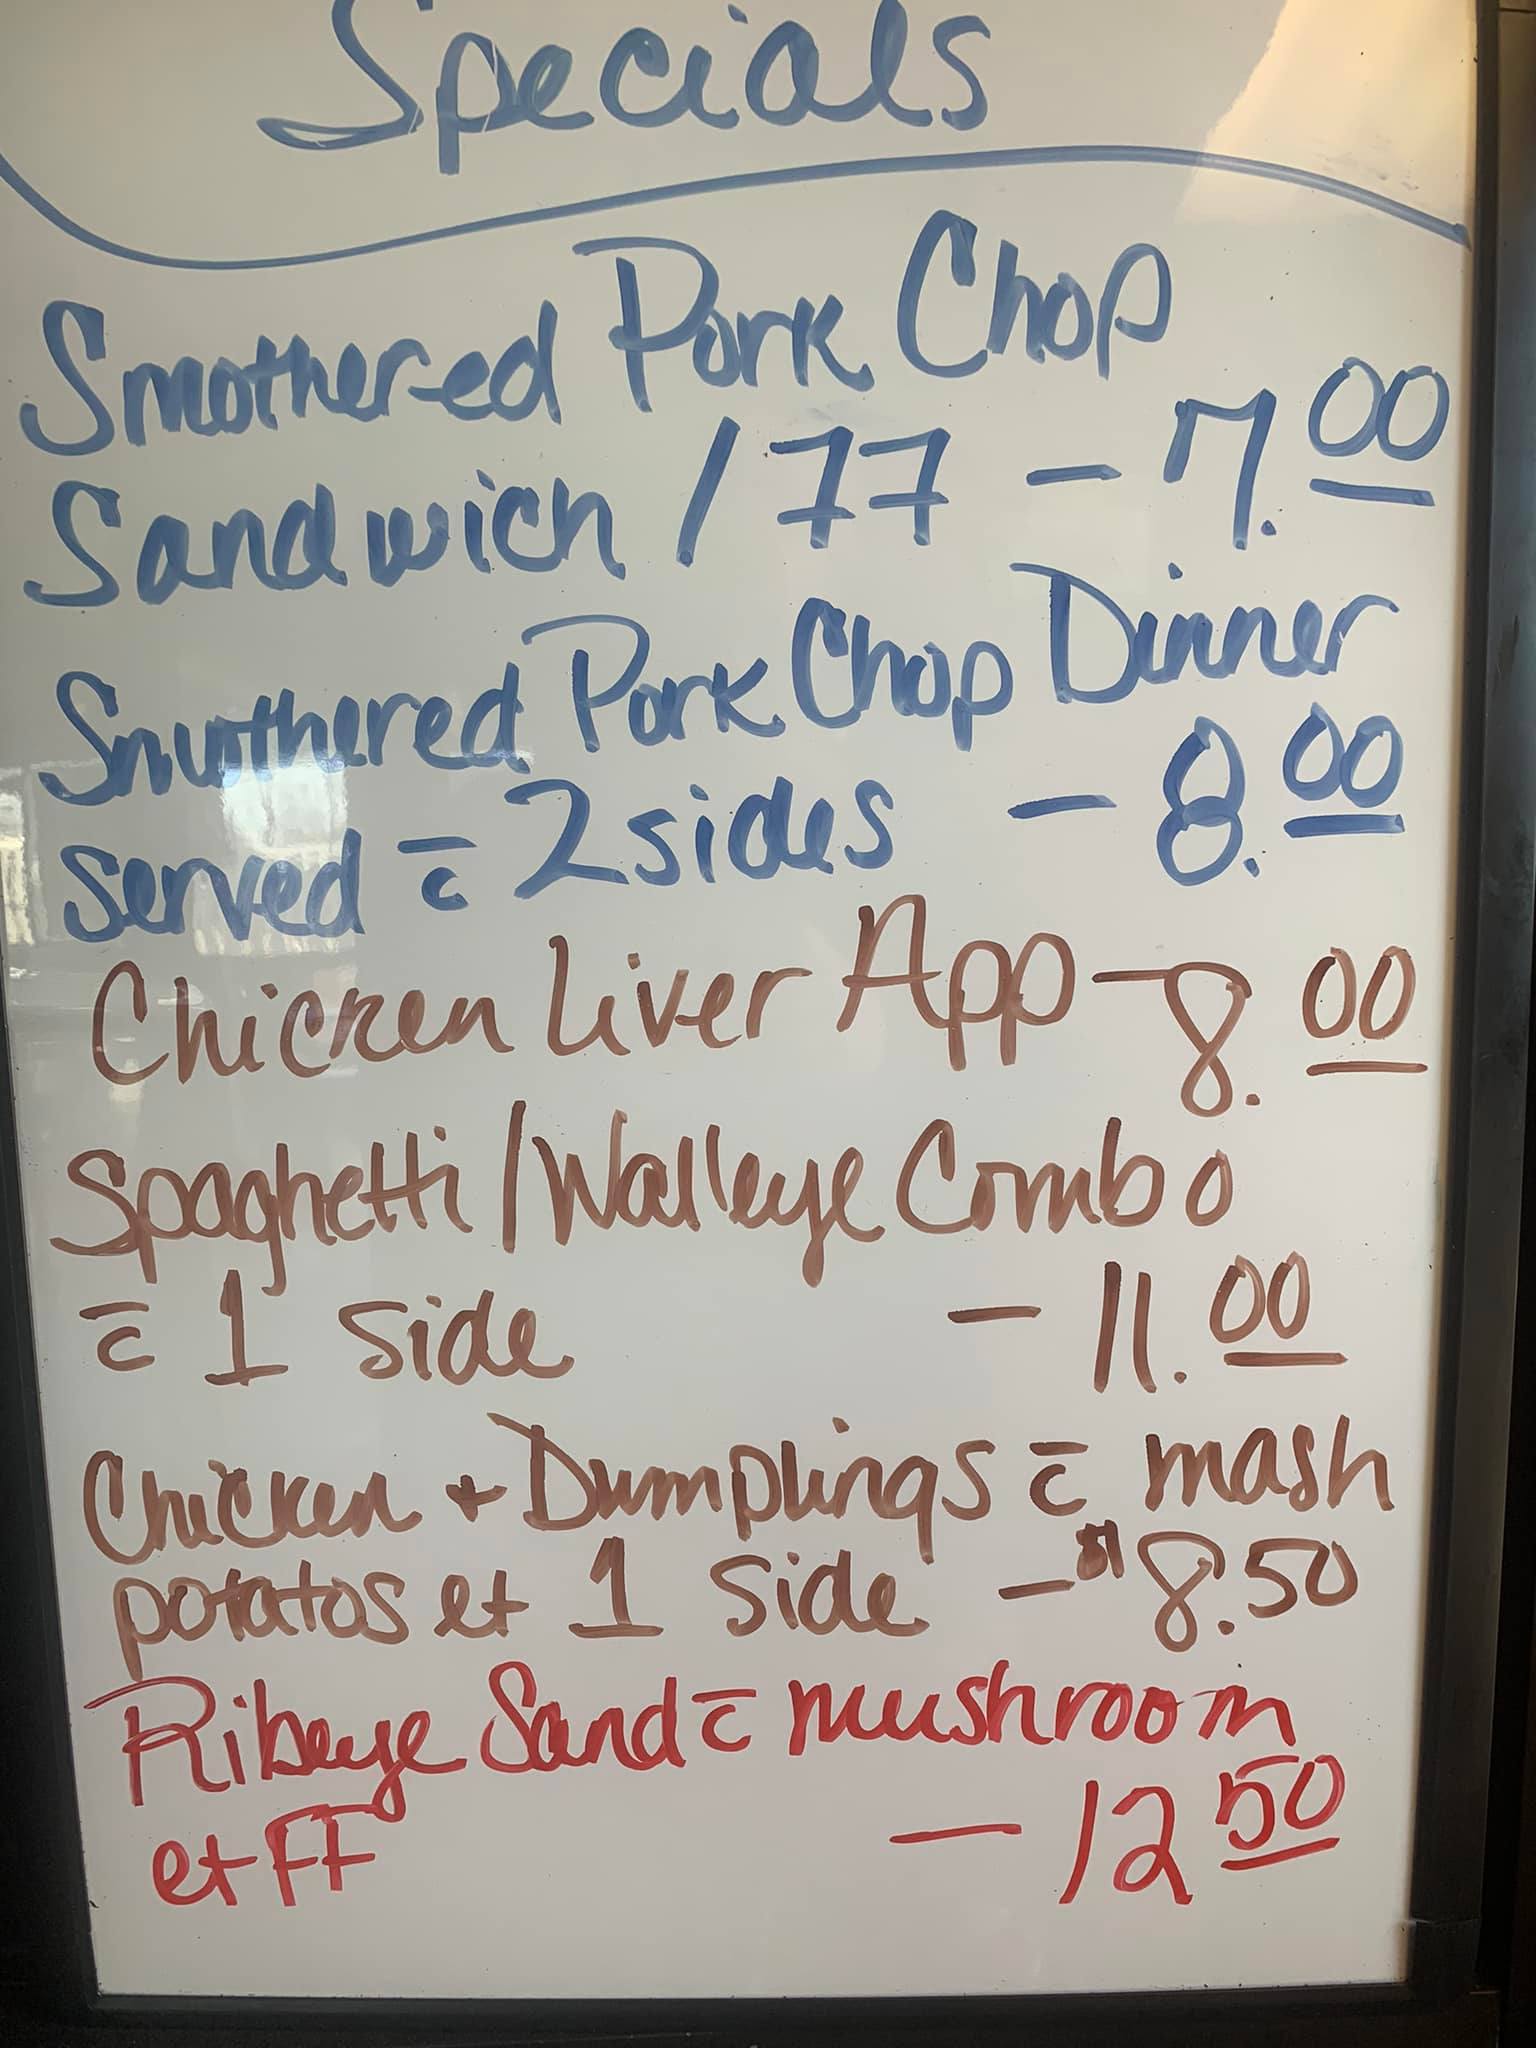 Specials
Smothered Pork Chop
Sandwich / FF - 7.00
Smothered Pork Chop Dinner
served c̄ 2 sides - 8.00
Chicken Liver App - 8.00
Spaghetti / Walleye Combo
c̄ 1 side - 11.00
Chicken + Dumplings c̄ mash
potatos et 1 side - 8.50
Ribeye Sand c̄ mushroom
et FF - 12 50